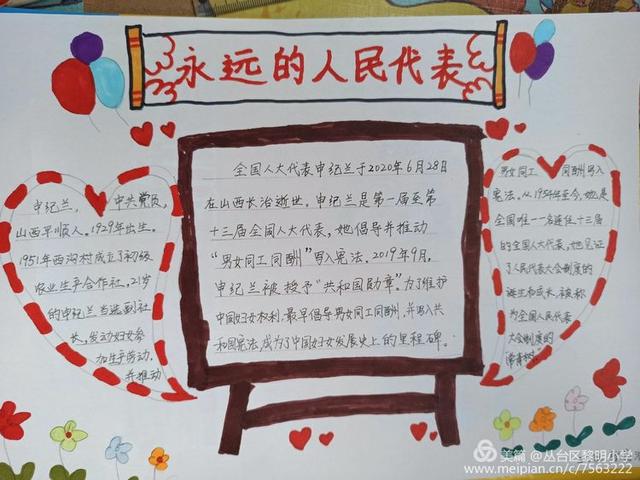 永远的人民代表
申纪兰，中共党员，
山西平顺人。1929年出生。
1951年西沟村成立了初级
农业生产合作社，21岁
的申纪兰当选副社
长，发动妇女参
加生产劳动，
并推动
全国人大代表申纪兰于2020年6月28日
在山西长治逝世。申纪兰是第一届至第
十三届全国人大代表，她倡导并推动
“男女同工同酬”写入宪法。2019年9月，
申纪兰被授予“共和国勋章”。为了维护
中国妇女权利，最早倡导男女同工同酬，并写入共
和国宪法，成为了中国妇女发展史上的里程碑。
男女同工同酬写入
宪法。从1954年至今，她是
全国唯一一名连任十三届
的全国人大代表，她见证
了人民代表大会制度的
诞生和成长，被称
为全国人民代表
大会制度的
“常青树”
美篇 @丛台区黎明小学
www.meipian.cn/c/7563222